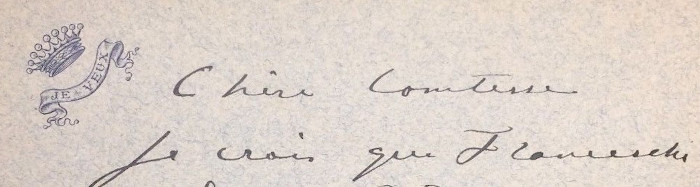 JE VEUX
Chère Comtesse
Je crois que Franceschi